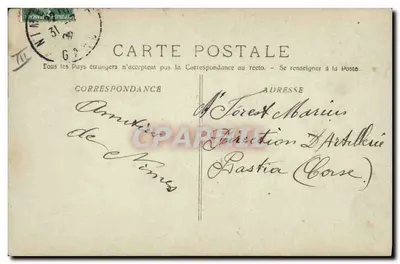 NIM
31
GA
III
CARTE POSTALE
Tous les Pays étrangers n'acceptent pas la Correspondance au recto. - Se renseigner à la Poste
CORRESPONDANCE
ADRESSE
Amitiés
de Nîmes
Mr Forest Marius
Direction D'Artillerie
Bastia (Corse)
CPAPHIL